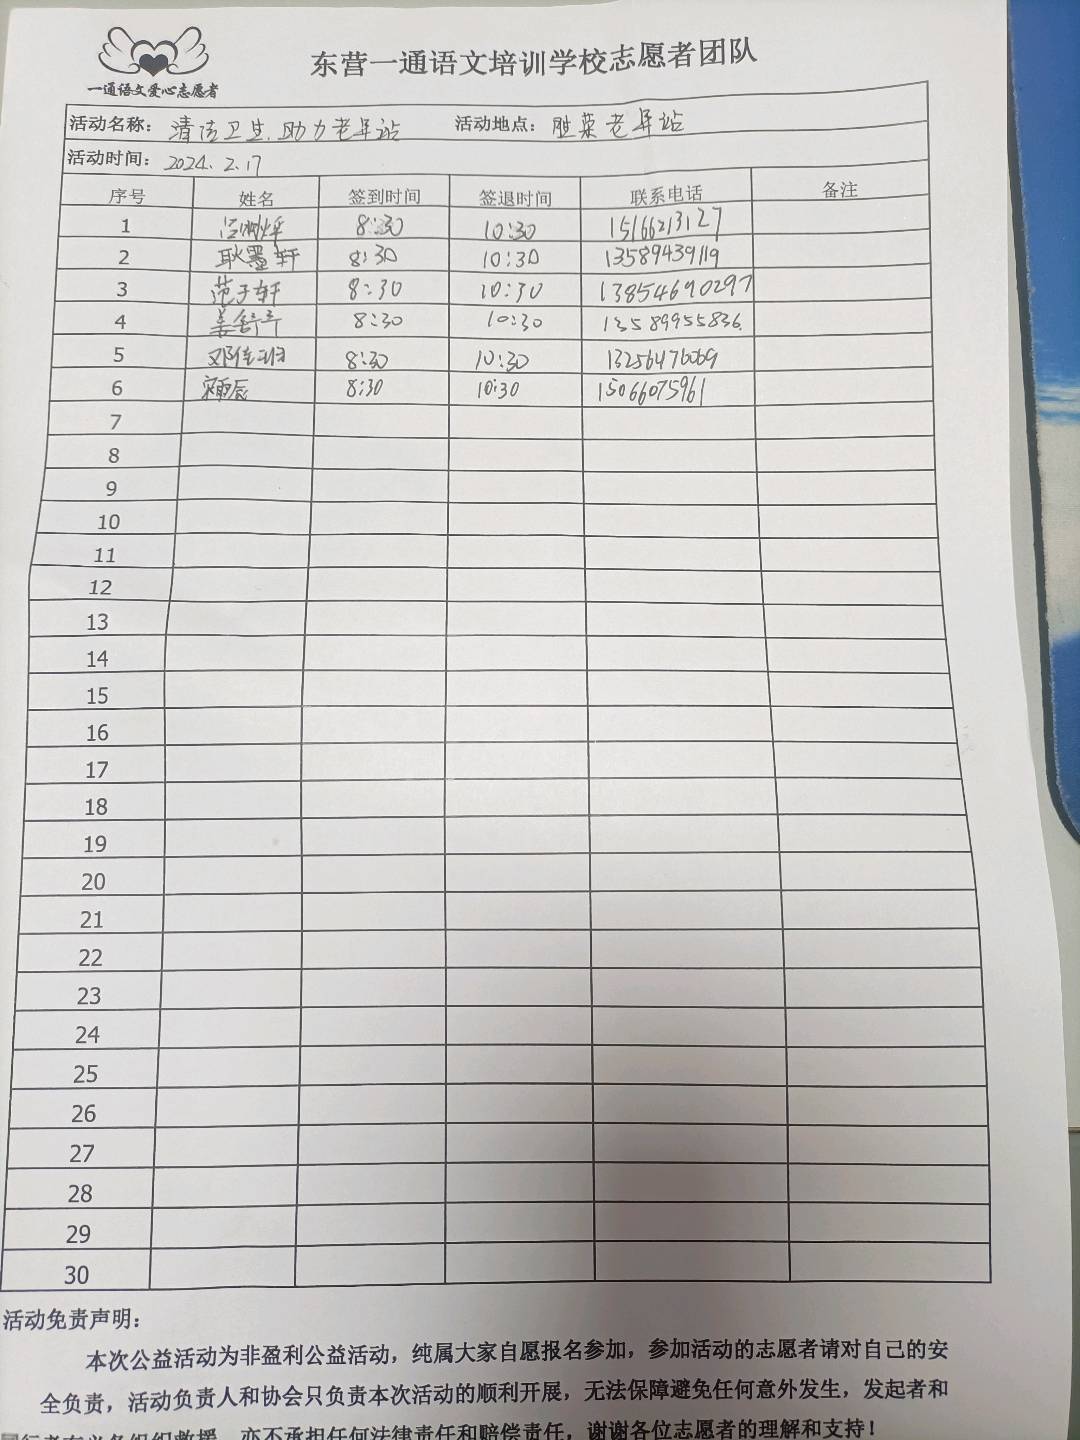 一通语文爱心志愿者
东营一通语文培训学校志愿者团队
活动名称: 清洁卫生.助力老年站 活动地点: 胜菜老年站
活动时间: 2024.2.17
序号 姓名 签到时间 签退时间 联系电话 备注
1 8:30 10:30 15166213127
2 耿墨轩 8:30 10:30 13589439119
3 范子轩 8:30 10:30 13854690297
4 姜舒 8:30 10:30 13589955836
5 邓佳 8:30 10:30 13256476069
6 辰 8:30 10:30 15066075961
7
8
9
10
11
12
13
14
15
16
17
18
19
20
21
22
23
24
25
26
27
28
29
30
活动免责声明:
本次公益活动为非盈利公益活动，纯属大家自愿报名参加，参加活动的志愿者请对自己的安
全负责，活动负责人和协会只负责本次活动的顺利开展，无法保障避免任何意外发生，发起者和
同行者有义务组织救援，亦不承担任何法律责任和赔偿责任，谢谢各位志愿者的理解和支持！